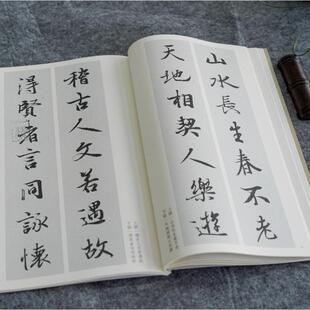 山水長生春不老
天地相契人樂遊
稽古人文若遇故
得賢者言同詠懷